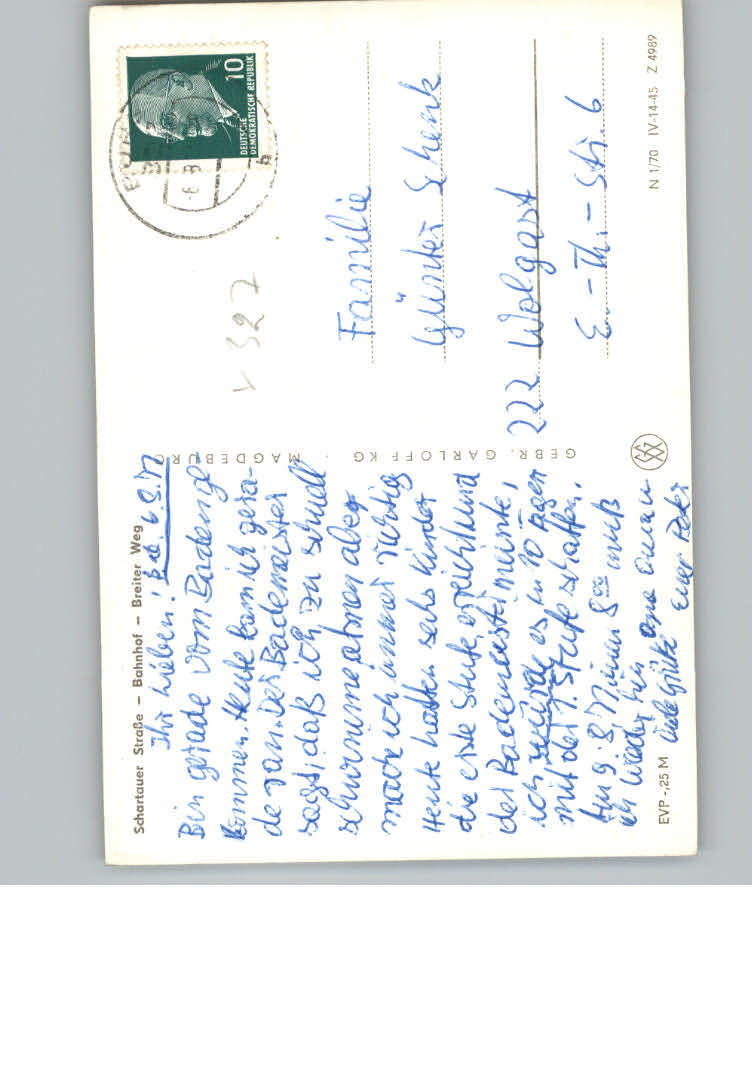 Schartauer Straße – Bahnhof – Breiter Weg
Ihr Lieben!
Bin gerade vom Baden ge-
kommen. Heute kam ich gera-
de ran. Der Bademeister
sagt, daß ich zu schnell
schwimme atmen aber
mache ich immer richtig
Heute hatten sechs Kinder
die erste Stufe erreicht und
der Bademeister meinte,
ich würde es in 10 Tagen
mit der 1. Stufe schaffen.
Am 9. 8. um 8 00 muß
ich wieder hin
viele Grüße euer Peter
EVP -,25 M
GEBR. GARLOFF KG · MAGDEBURG
DEUTSCHE
DEMOKRATISCHE REPUBLIK
10
v 327
Familie
Günter Schenk
222 Wolgast
E.-Th.-Str. 6
N 1/70 IV-14-45 Z 4989